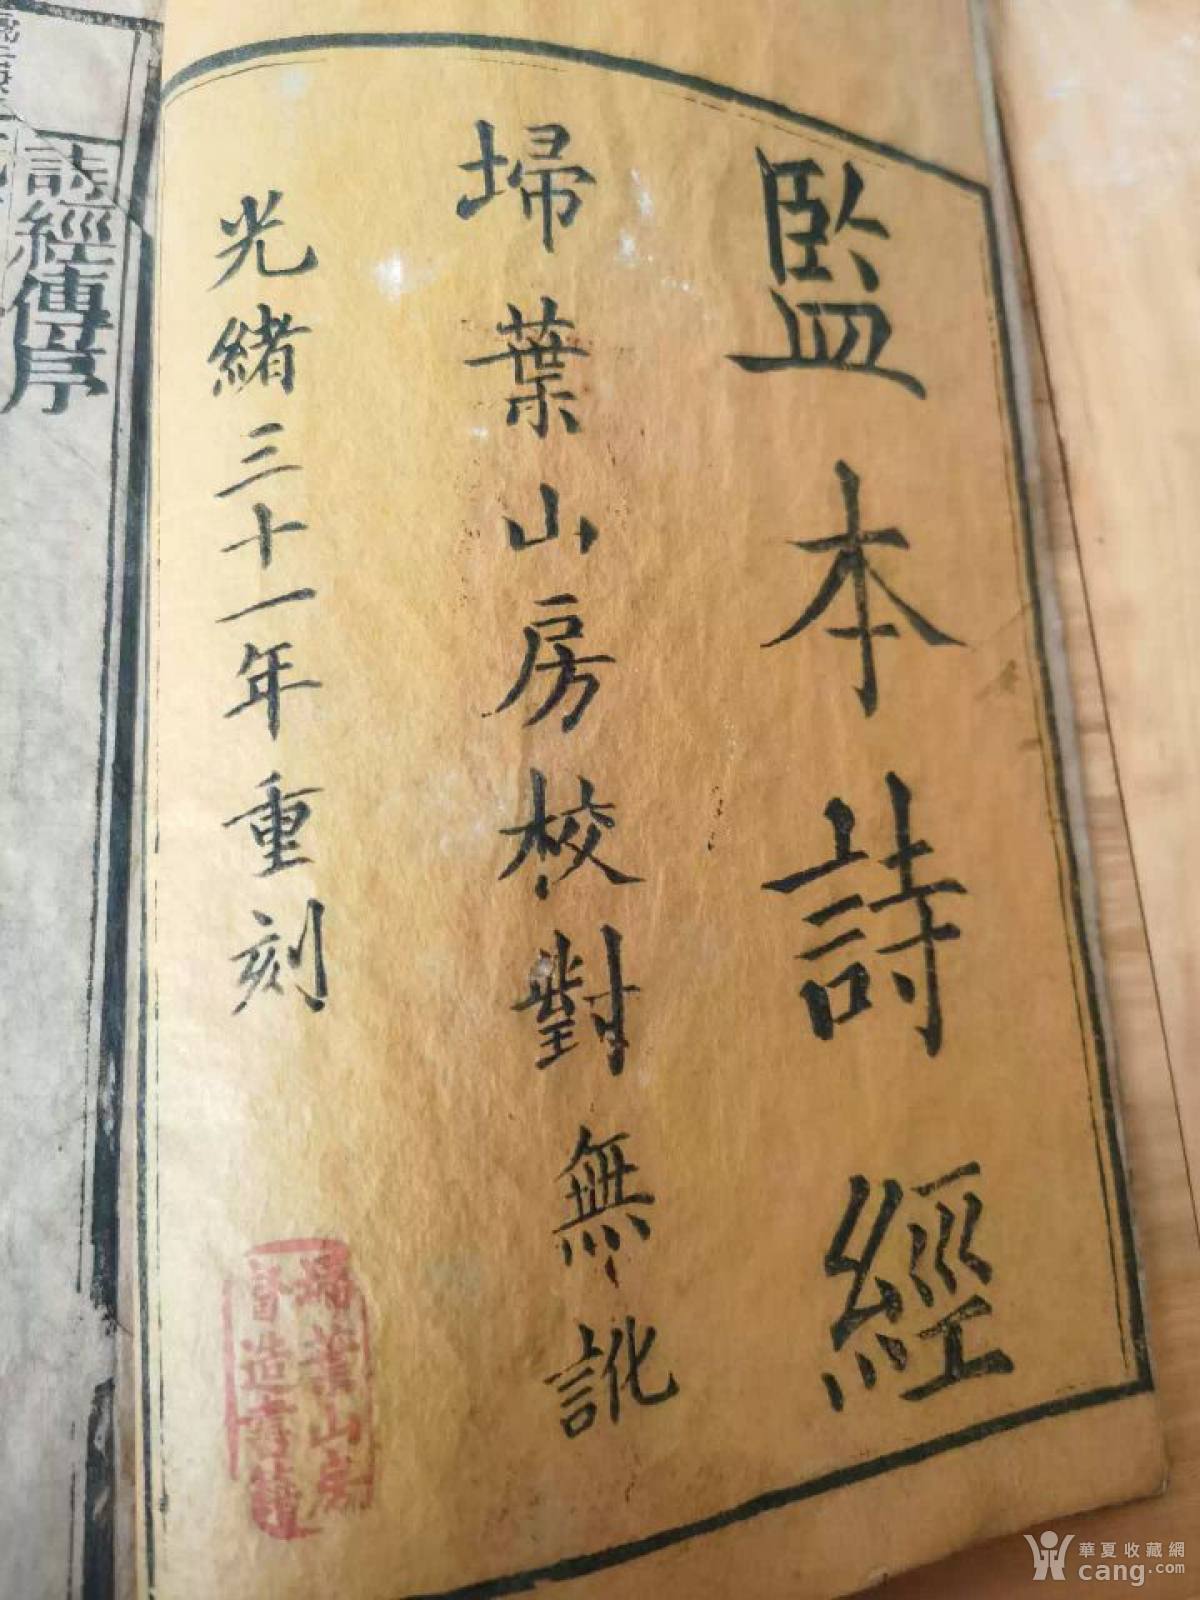 監本詩經
埽葉山房校對無訛
光緒三十一年重刻
埽葉山房
督造書籍
詩經傳序
華夏收藏網
cang.com